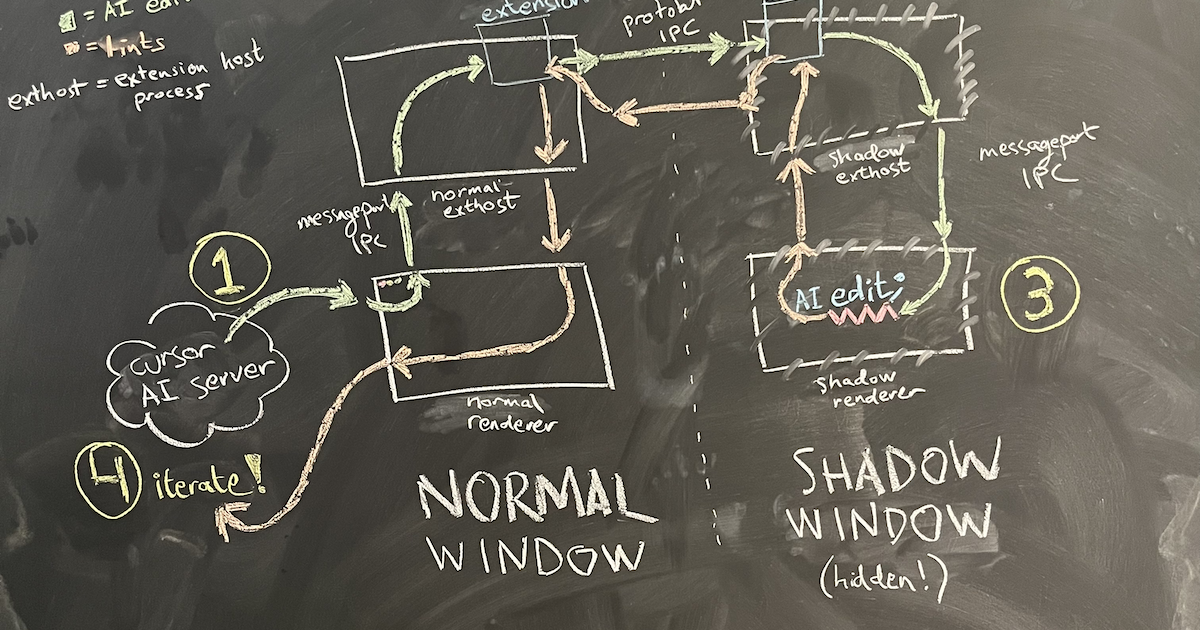 = AI edit
= lints
exthost = extension host
process
extension
IPC
normal
exthost
messageport
IPC
shadow
exthost
messageport
IPC
1
cursor
AI server
normal
renderer
AI edit;
3
shadow
renderer
4 iterate!
NORMAL
WINDOW
SHADOW
WINDOW
(hidden!)